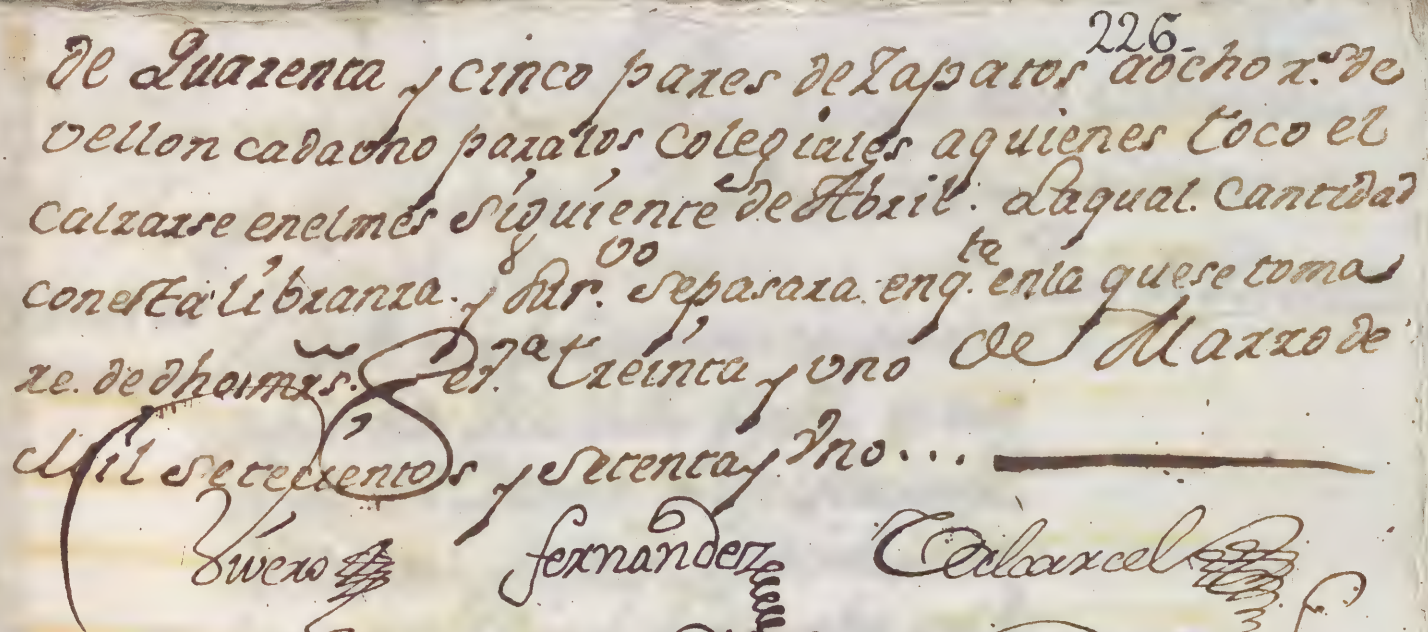 226-
de Quarenta y cinco pares de Zapatos a ocho r.s de
vellon cada vno para los Colegiales a quienes toco el
calzarse en el mes siguiente de Abril. La qual Cantidad
con esta libranza. y su r.vo se pasara en q.ta en la que se toma
re. de dhos mrs. Treinta y vno de Marzo de
Mil setecientos y setenta y Vno...
Vivero fernandez Balcarcel